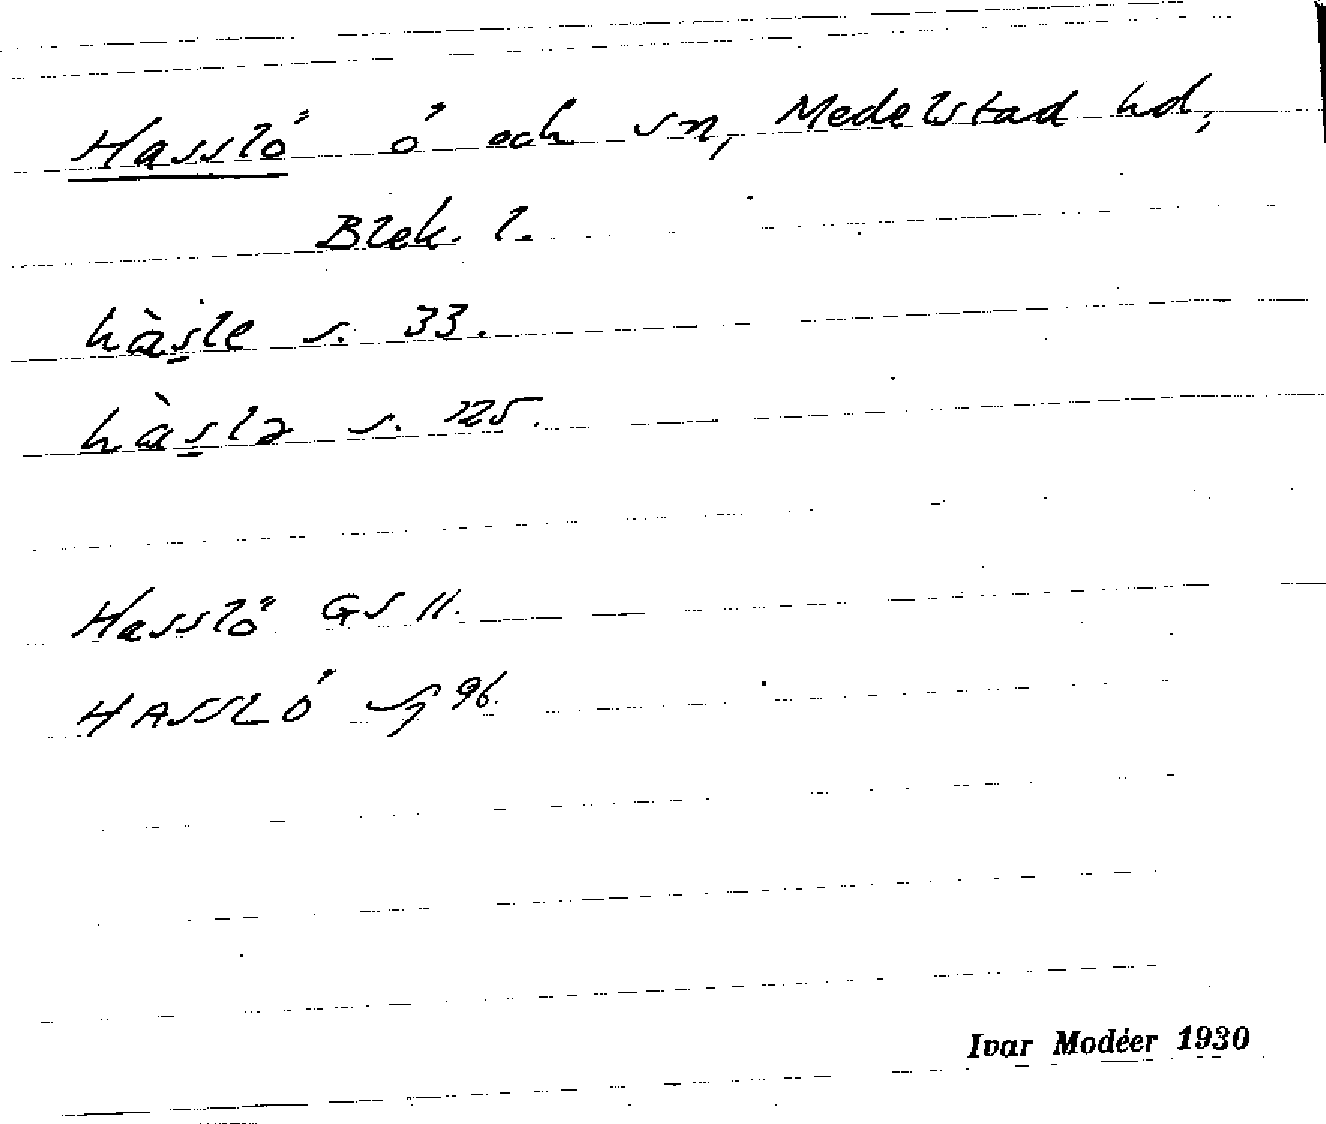 Hasslö ö och sn, Medelstad hd,
Blek. l.
hàsle s. 33.
hàslə s. 125.
Hasslö GS 11.
HASSLÖ 96.
Ivar Modéer 1930